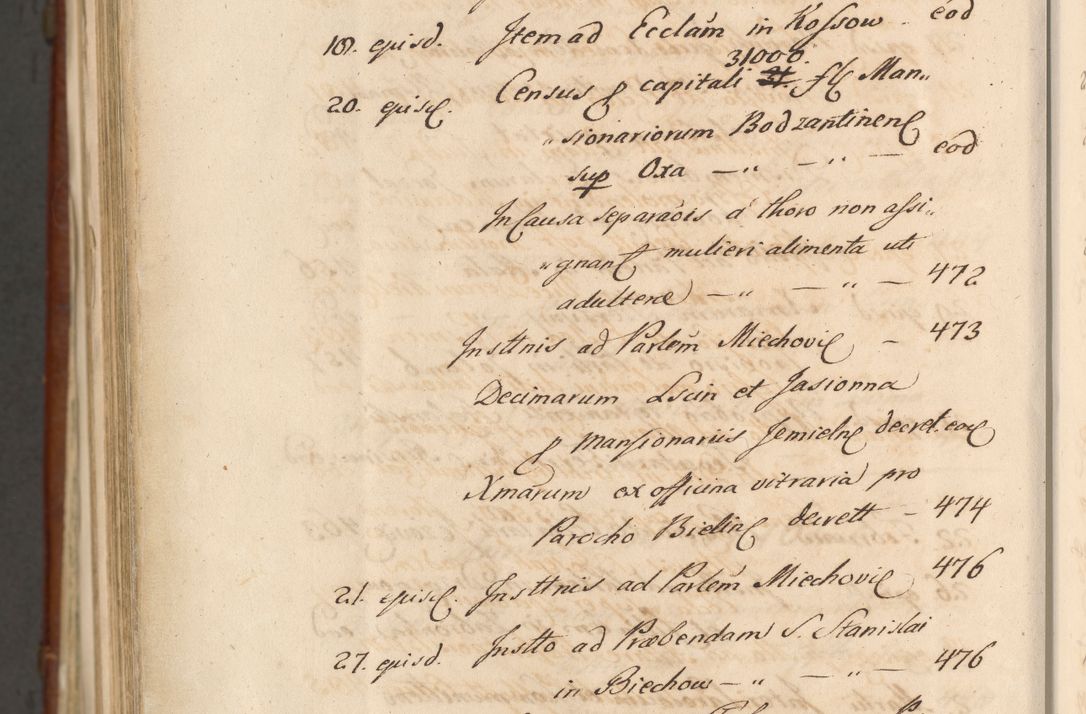 18. episd. Item ad Ecclam in Kossow . eod
31000.
20. episc. Census p capitali 21. fl Man„
„sionariorum Bodzantinen
sup Oxa — „ — „ — eod
In Causa separaois a thoro non assi„
„gnan mulieri alimenta uti
adulteræ — „ — „ — 472
Insttnis ad Parlem Miechovi – 473
Decimarum Lscin et Jasionna
p Mansionariis Jemieln decret. eod
Xmarum ex officina vitraria pro
Parocho Bielin decrett – 474
21. episc. Insttnis ad Parlem Miechovi 476
27. episd. Instto ad Præbendam S. Stanislai
in Biechow – „ — „ — 476